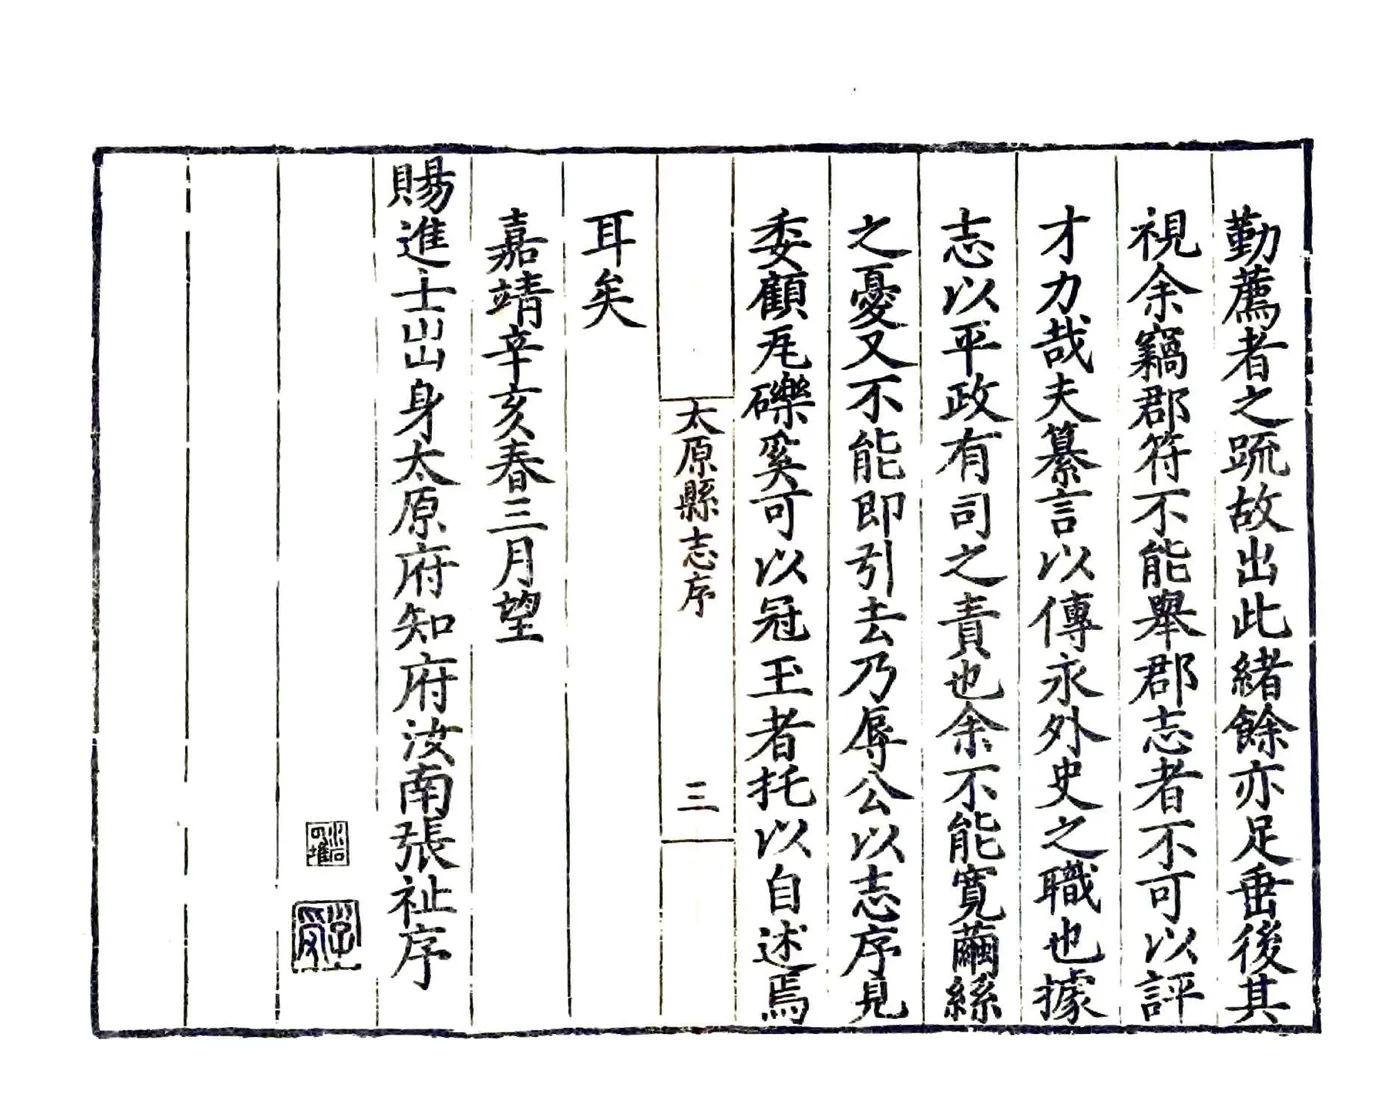 勤薦者之疏故出此緒餘亦足垂後其
視余竊郡符不能舉郡志者不可以評
才力哉夫纂言以傳永外史之職也據
志以平政有司之責也余不能寬繭絲
之憂又不能即引去乃辱公以志序見
委顧瓦礫奚可以冠玉者托以自述焉
太原縣志序
三
耳矣
嘉靖辛亥春三月望
賜進士出身太原府知府汝南張祉序